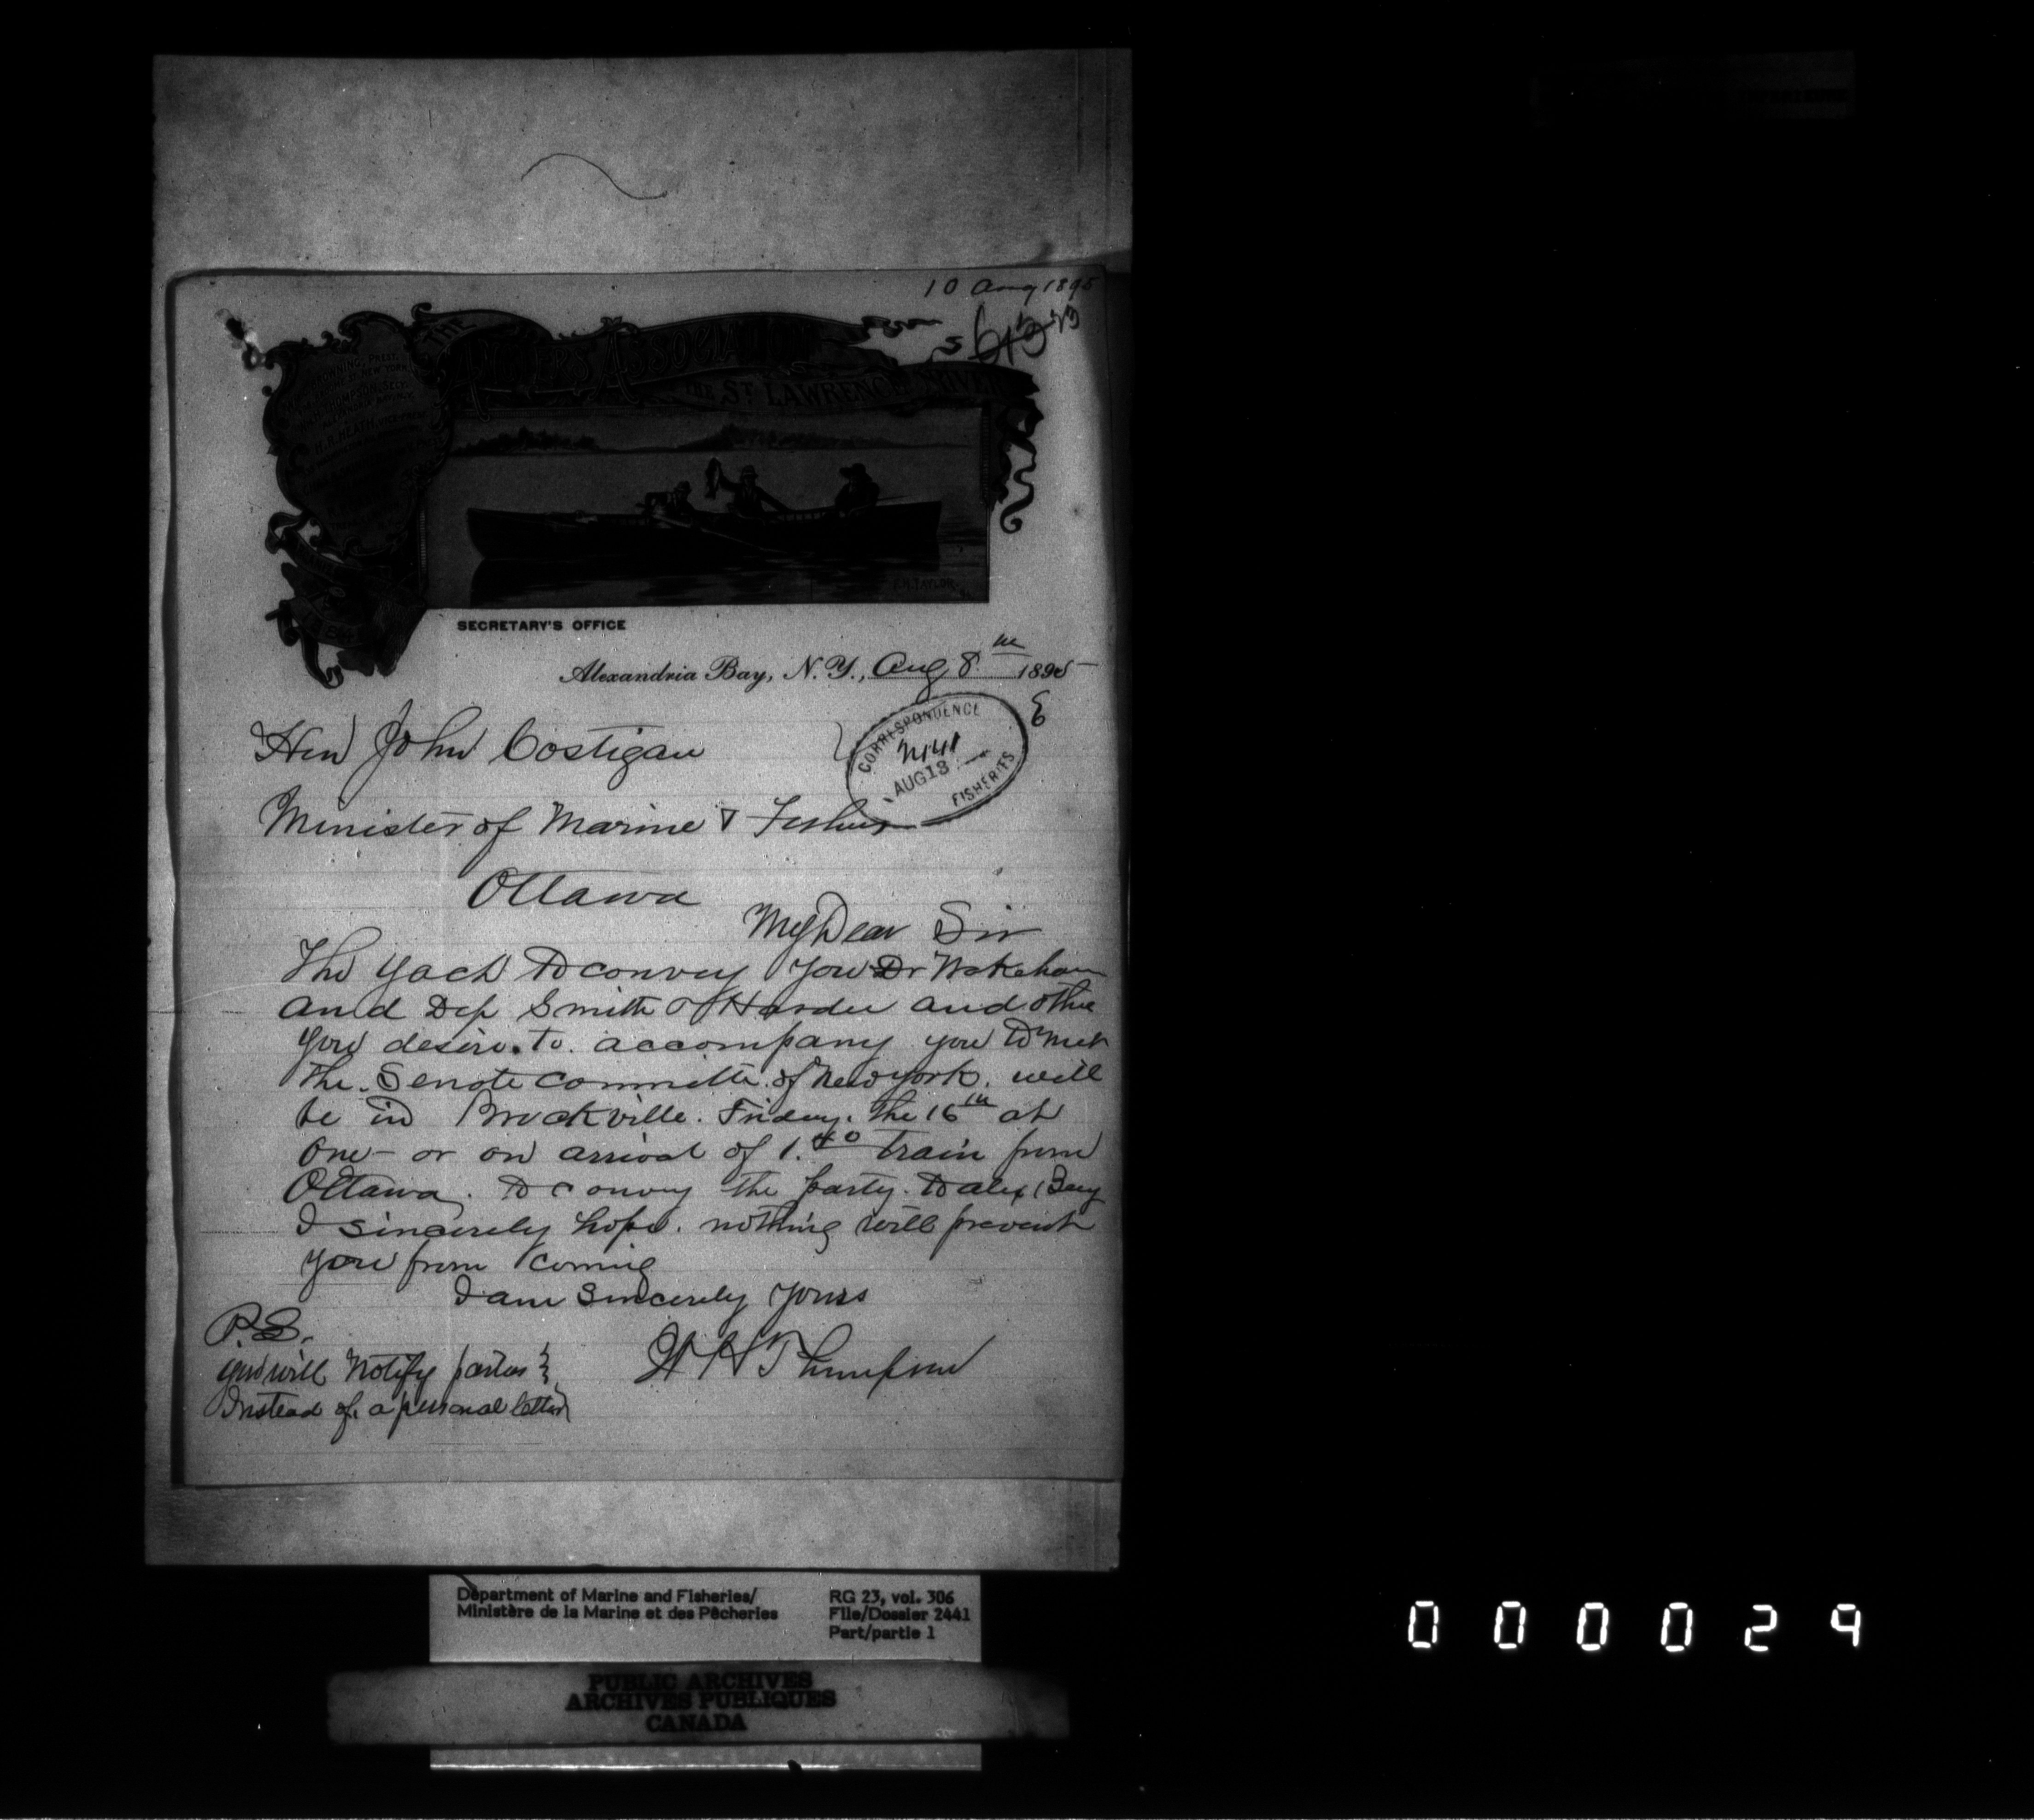 10 Aug 1895
THE
ANGLERS ASSOCIATION
THE ST. LAWRENCE RIVER
BROWNING, PREST.
NEW YORK
W.H. THOMPSON, SECY.
ALEXANDRIA BAY, N.Y.
H.R. HEATH, VICE-PREST.
SECRETARY'S OFFICE
Alexandria Bay, N. Y., Aug 8th 1895
CORRESPONDENCE
2441
AUG 13
FISHERIES
Hon John Costigan
Minister of Marine & Fisheries
Ottawa
My Dear Sir
The yach to convey you Dr Wakeham
and Dep Smith & Hardie and othe
you desire to accompany you to meet
the Senate Committe of New York. will
be in Brockville. Friday. the 16th at
One - or on arrival of 1.40 train from
Ottawa. to convey the party. to Alex Bay
I sincerely hope. nothing will prevent
you from coming
I am Sincerely Yours
P.S.
you will Notify parties
W H Thompson
Instead of a personal letter
Department of Marine and Fisheries/
Ministère de la Marine et des Pêcheries
RG 23, vol. 306
File/Dossier 2441
Part/partie 1
PUBLIC ARCHIVES
ARCHIVES PUBLIQUES
CANADA
000029